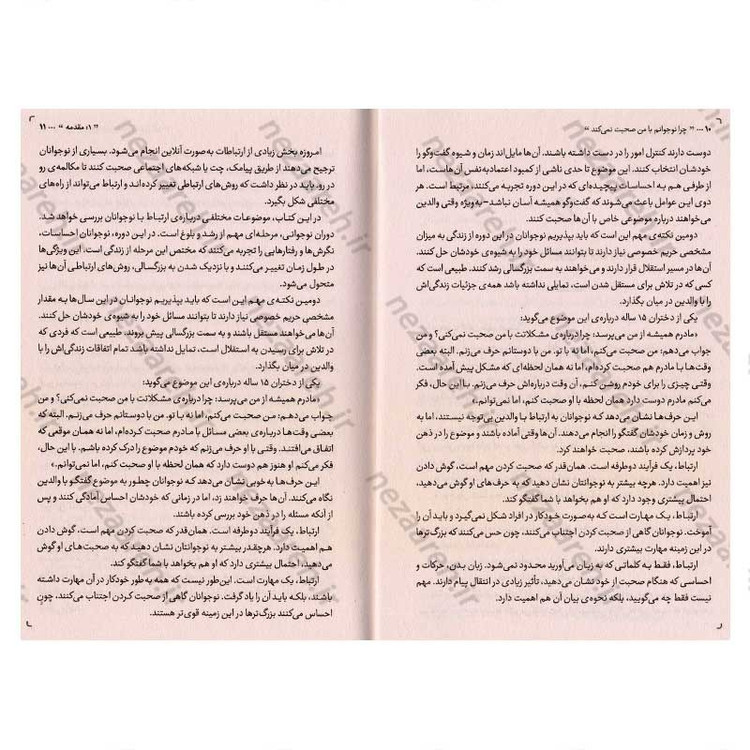 ۱۰ ... " چرا نوجوانم با من صحبت نمی‌کند "
دوست دارند کنترل امور را در دست داشته باشند. آن‌ها مایل‌اند زمان و شیوه گفت‌وگو را
خودشان انتخاب کنند. این موضوع تا حدی ناشی از کمبود اعتمادبه‌نفس آن‌هاست، اما
از طرفی هم به احساسات پیچیده‌ای که در این دوره تجربه می‌کنند، مرتبط است. هر
دوی این عوامل باعث می‌شوند که گفت‌وگو همیشه آسان نباشد- به‌ویژه وقتی والدین
می‌خواهند درباره موضوعی خاص با آن‌ها صحبت کنند.
دومین نکته‌ی مهم این است که باید بپذیریم نوجوانان در این دوره از زندگی به میزان
مشخصی حریم خصوصی نیاز دارند تا بتوانند مسائل خود را به شیوه‌ی خودشان حل کنند.
آن‌ها در مسیر استقلال قرار دارند و می‌خواهند به سمت بزرگسالی رشد کنند. طبیعی است که
کسی که در تلاش برای مستقل شدن است، تمایلی نداشته باشد همه‌ی جزئیات زندگی‌اش
را با والدین در میان بگذارد.
یکی از دختران ۱۵ ساله درباره‌ی این موضوع می‌گوید:
«مادرم همیشه از من می‌پرسد: چرا درباره‌ی مشکلاتت با من صحبت نمی‌کنی؟ و من
جواب می‌دهم: من صحبت می‌کنم، اما نه با تو. من با دوستانم حرف می‌زنم. البته بعضی
وقت‌ها با مادرم هم صحبت کرده‌ام، اما نه همان لحظه‌ای که مشکل پیش آمده است.
وقتی چیزی را برای خودم روشن کنم، آن وقت درباره‌اش حرف می‌زنم. با این حال، فکر
می‌کنم مادرم دوست دارد همان لحظه با او صحبت کنم، اما نمی‌توانم.»
این حرف‌ها نشان می‌دهد که نوجوانان به ارتباط با والدین بی‌توجه نیستند، اما به
روش و زمان خودشان گفتگو را انجام می‌دهند. آن‌ها وقتی آماده باشند و موضوع را در ذهن
خود پردازش کرده باشند، صحبت خواهند کرد.
ارتباط، یک فرآیند دوطرفه است. همان‌قدر که صحبت کردن مهم است، گوش دادن
نیز اهمیت دارد. هرچه بیشتر به نوجوانتان نشان دهید که به حرف‌های او گوش می‌دهید،
احتمال بیشتری وجود دارد که او هم بخواهد با شما گفتگو کند.
ارتباط، یک مهارت است که به‌صورت خودکار در افراد شکل نمی‌گیرد و باید آن را
آموخت. نوجوانان گاهی از صحبت کردن اجتناب می‌کنند، چون حس می‌کنند که بزرگ‌ترها
در این زمینه مهارت بیشتری دارند.
ارتباط، فقط به کلماتی که به زبان می‌آورید محدود نمی‌شود. زبان بدن، حرکات و
احساسی که هنگام صحبت از خود نشان می‌دهید، تأثیر زیادی در انتقال پیام دارند. مهم
نیست فقط چه می‌گویید، بلکه نحوه‌ی بیان آن هم اهمیت دارد.
" ۱: مقدمه " ... ۱۱
امروزه بخش زیادی از ارتباطات به‌صورت آنلاین انجام می‌شود. بسیاری از نوجوانان
ترجیح می‌دهند از طریق پیامک، چت یا شبکه‌های اجتماعی صحبت کنند تا مکالمه‌ی رو
در رو. باید در نظر داشت که روش‌های ارتباطی تغییر کرده‌اند و ارتباط می‌تواند از راه‌های
مختلفی شکل بگیرد.
در این کتاب، موضوعات مختلفی درباره‌ی ارتباط با نوجوانان بررسی خواهد شد.
دوران نوجوانی، مرحله‌ای مهم از رشد و بلوغ است. در این دوره، نوجوانان احساسات،
نگرش‌ها و رفتارهایی را تجربه می‌کنند که مختص این مرحله از زندگی است. این ویژگی‌ها
در طول زمان تغییر می‌کنند و با نزدیک شدن به بزرگسالی، روش‌های ارتباطی آن‌ها نیز
متحول می‌شود.
دومین نکته‌ی مهم این است که باید بپذیریم نوجوانان در این سال‌ها به مقدار
مشخصی حریم خصوصی نیاز دارند تا بتوانند مسائل خود را به شیوه‌ی خودشان حل کنند.
آن‌ها می‌خواهند مستقل باشند و به سمت بزرگسالی پیش بروند. طبیعی است که فردی که
در تلاش برای رسیدن به استقلال است، تمایل نداشته باشد تمام اتفاقات زندگی‌اش را با
والدین در میان بگذارد.
یکی از دختران ۱۵ ساله درباره‌ی این موضوع می‌گوید:
«مادرم همیشه از من می‌پرسد: چرا درباره‌ی مشکلاتت با من صحبت نمی‌کنی؟ و من
جواب می‌دهم: من صحبت می‌کنم، اما نه با تو. من با دوستانم حرف می‌زنم. البته که
بعضی وقت‌ها درباره‌ی بعضی مسائل با مادرم صحبت کرده‌ام، اما نه همان موقعی که
اتفاق می‌افتند. وقتی با او حرف می‌زنم که خودم موضوع را درک کرده باشم. با این حال،
فکر می‌کنم او هنوز هم دوست دارد که همان لحظه با او صحبت کنم، اما نمی‌توانم.»
این حرف‌ها به خوبی نشان می‌دهد که نوجوانان چطور به موضوع گفتگو با والدین
نگاه می‌کنند. آن‌ها حرف خواهند زد، اما در زمانی که خودشان احساس آمادگی کنند و پس
از آنکه مسئله را در ذهن خود بررسی کرده باشند.
ارتباط، یک فرآیند دوطرفه است. همان‌قدر که صحبت کردن مهم است، گوش دادن
هم اهمیت دارد. هرچقدر بیشتر به نوجوانتان نشان دهید که به صحبت‌های او گوش
می‌دهید، احتمال بیشتری دارد که او هم بخواهد با شما گفتگو کند.
ارتباط، یک مهارت است. این‌طور نیست که همه به‌طور خودکار در آن مهارت داشته
باشند، بلکه باید آن را یاد گرفت. نوجوانان گاهی از صحبت کردن اجتناب می‌کنند، چون
احساس می‌کنند بزرگ‌ترها در این زمینه قوی‌تر هستند.
nezareh.ir